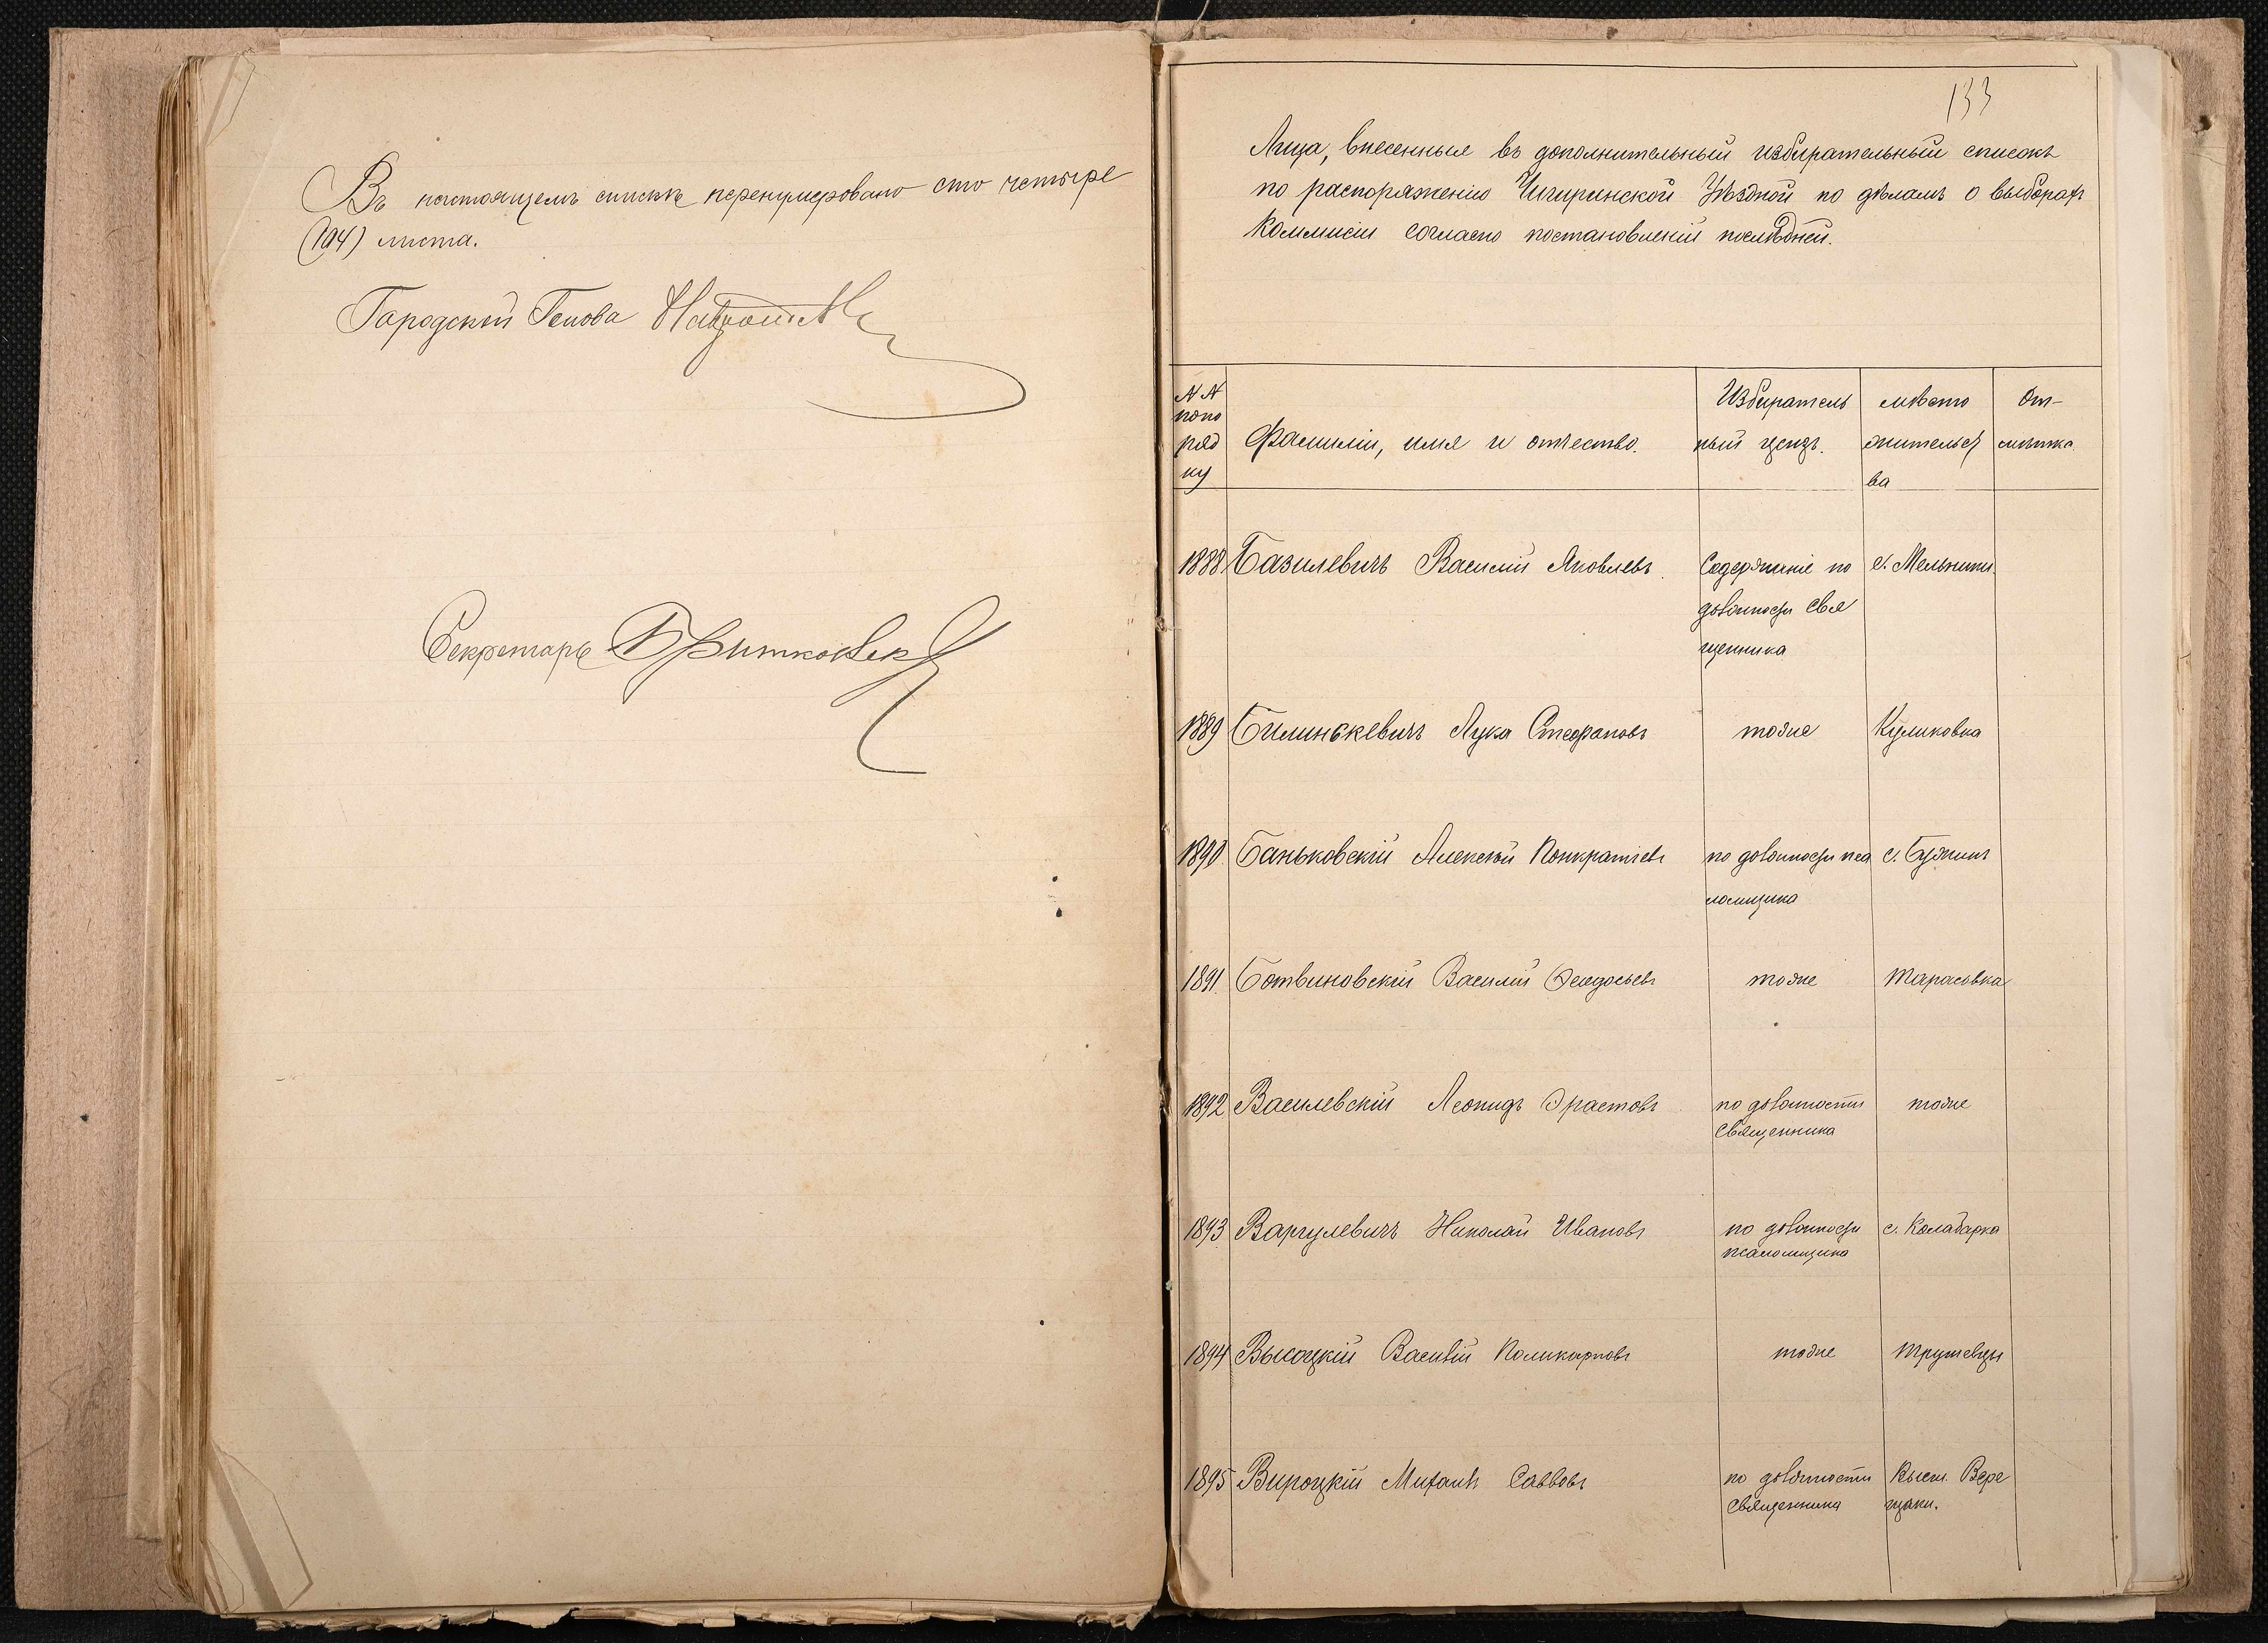 Въ настоящемъ списке перенумеровано сто четыре
(104) листа.
Городской Голова
Секретарь
133
Лица, внесенныя въ дополнительный избирательный списокъ
по распоряженію Чигиринской Уѣздной по дѣламъ о выборахъ
Коммисіи согласно постановленій послѣдней.
№ №
попо
ряд
ку
Фамилія, имя и отчество.
Избиратель
ный цензъ.
мѣсто
жительст
ва
От-
мѣтка.
1888 Базилевичъ Василій Яковлевъ Содержаніе по с. Мельники
должности Свя
щенника
1889 Билинскевичъ Лука Стефановъ тоже Куликовка
1890 Баньковскій Алексѣй Понкратіевъ по должности пса с. Бужинъ
ломщика
1891 Ботвиновскій Василій Феодосьевъ тоже Тарасовка
1892 Василевскій Леонидъ Эрастовъ по должности тоже
Священника
1893 Варгулевичъ Николай Ивановъ по должности с. Калабарка
псаломщика
1894 Высоцкій Василій Поликарповъ тоже Трушевцы
1895 Вироцкій Михаилъ Саввовъ по должности Высш. Вере
Священника щаки.